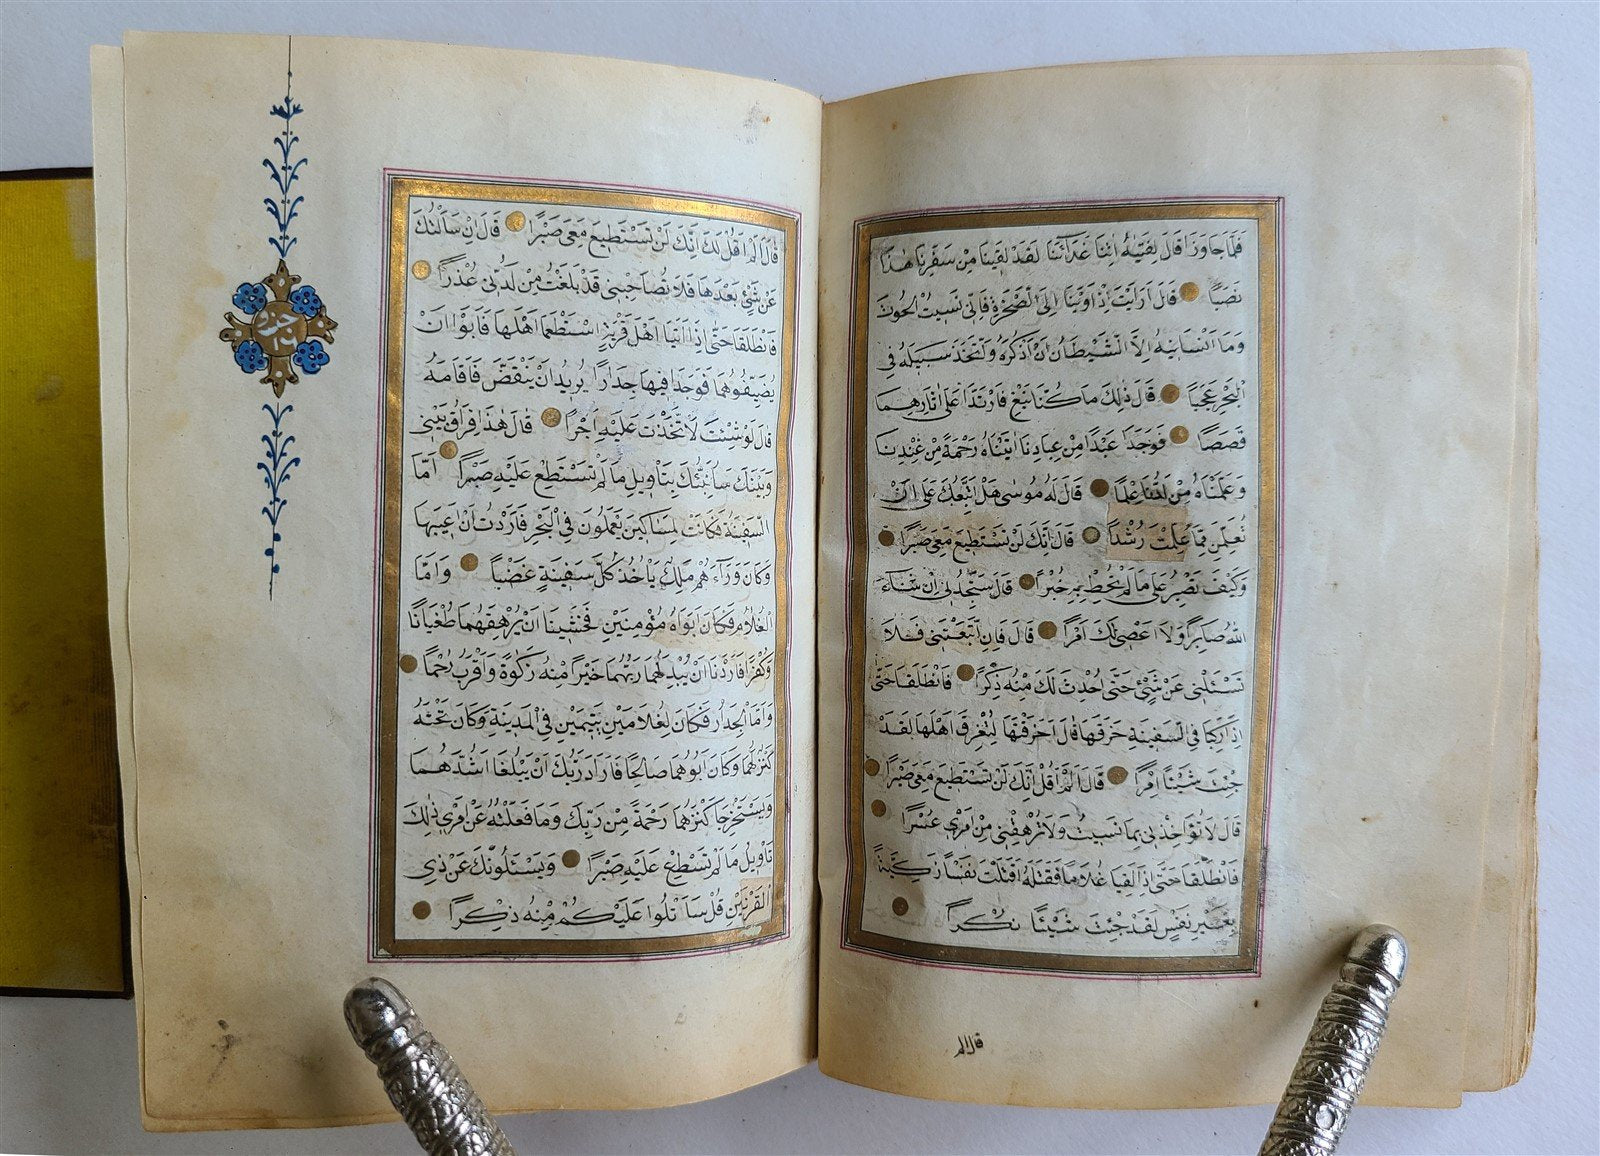 فَلَمَّا جَاوَزَا قَالَ لِفَتٰيهُ اٰتِنَا غَدَآءَنَا لَقَدْ لَقِينَا مِنْ سَفَرِنَا هٰذَا
نَصَبًا قَالَ اَرَاَيْتَ اِذْ اَوَيْنَا اِلَى الصَّخْرَةِ فَاِنِّي نَسِيتُ الْحُوتَ
وَمَا اَنْسَانِيهُ اِلَّا الشَّيْطَانُ اَنْ اَذْكُرَهُ وَاتَّخَذَ سَبِيلَهُ فِي
الْبَحْرِ عَجَبًا قَالَ ذٰلِكَ مَا كُنَّا نَبْغِ فَارْتَدَّا عَلٰى اٰثَارِهِمَا
قَصَصًا فَوَجَدَا عَبْدًا مِنْ عِبَادِنَا اٰتَيْنَاهُ رَحْمَةً مِنْ عِنْدِنَا
وَعَلَّمْنَاهُ مِنْ لَدُنَّا عِلْمًا قَالَ لَهُ مُوسٰى هَلْ اَتَّبِعُكَ عَلٰى اَنْ
تُعَلِّمَنِ مِمَّا عُلِّمْتَ رُشْدًا قَالَ اِنَّكَ لَنْ تَسْتَطِيعَ مَعِيَ صَبْرًا
وَكَيْفَ تَصْبِرُ عَلٰى مَا لَمْ تُحِطْ بِهِ خُبْرًا قَالَ سَتَجِدُنِي اِنْ شَآءَ
اللّٰهُ صَابِرًا وَلَا اَعْصِي لَكَ اَمْرًا قَالَ فَاِنِ اتَّبَعْتَنِي فَلَا
تَسْـَٔلْنِي عَنْ شَيْءٍ حَتّٰى اُحْدِثَ لَكَ مِنْهُ ذِكْرًا فَانْطَلَقَا حَتّٰى
اِذَا رَكِبَا فِي السَّفِينَةِ خَرَقَهَا قَالَ اَخَرَقْتَهَا لِتُغْرِقَ اَهْلَهَا لَقَدْ
جِئْتَ شَيْئًا اِمْرًا قَالَ اَلَمْ اَقُلْ اِنَّكَ لَنْ تَسْتَطِيعَ مَعِيَ صَبْرًا
قَالَ لَا تُؤَاخِذْنِي بِمَا نَسِيتُ وَلَا تُرْهِقْنِي مِنْ اَمْرِي عُسْرًا
فَانْطَلَقَا حَتّٰى اِذَا لَقِيَا غُلَامًا فَقَتَلَهُ قَالَ اَقَتَلْتَ نَفْسًا زَكِيَّةً
بِغَيْرِ نَفْسٍ لَقَدْ جِئْتَ شَيْئًا نُكْرًا
قال الم
قَالَ اَلَمْ اَقُلْ لَكَ اِنَّكَ لَنْ تَسْتَطِيعَ مَعِيَ صَبْرًا قَالَ اِنْ سَاَلْتُكَ
عَنْ شَيْءٍ بَعْدَهَا فَلَا تُصَاحِبْنِي قَدْ بَلَغْتَ مِنْ لَدُنِّي عُذْرًا
فَانْطَلَقَا حَتّٰى اِذَا اَتَيَا اَهْلَ قَرْيَةٍ اسْتَطْعَمَا اَهْلَهَا فَاَبَوْا اَنْ
يُضَيِّفُوهُمَا فَوَجَدَا فِيهَا جِدَارًا يُرِيدُ اَنْ يَنْقَضَّ فَاَقَامَهُ
قَالَ لَوْ شِئْتَ لَاتَّخَذْتَ عَلَيْهِ اَجْرًا قَالَ هٰذَا فِرَاقُ بَيْنِي
وَبَيْنِكَ سَاُنَبِّئُكَ بِتَاْوِيلِ مَا لَمْ تَسْتَطِعْ عَلَيْهِ صَبْرًا اَمَّا
السَّفِينَةُ فَكَانَتْ لِمَسَاكِينَ يَعْمَلُونَ فِي الْبَحْرِ فَاَرَدْتُ اَنْ اَعِيبَهَا
وَكَانَ وَرَآءَهُمْ مَلِكٌ يَاْخُذُ كُلَّ سَفِينَةٍ غَصْبًا وَاَمَّا
الْغُلَامُ فَكَانَ اَبَوَاهُ مُؤْمِنَيْنِ فَخَشِينَا اَنْ يُرْهِقَهُمَا طُغْيَانًا
وَكُفْرًا فَاَرَدْنَا اَنْ يُبْدِلَهُمَا رَبُّهُمَا خَيْرًا مِنْهُ زَكٰوةً وَاَقْرَبَ رُحْمًا
وَاَمَّا الْجِدَارُ فَكَانَ لِغُلَامَيْنِ يَتِيمَيْنِ فِي الْمَدِينَةِ وَكَانَ تَحْتَهُ
كَنْزٌ لَهُمَا وَكَانَ اَبُوهُمَا صَالِحًا فَاَرَادَ رَبُّكَ اَنْ يَبْلُغَا اَشُدَّهُمَا
وَيَسْتَخْرِجَا كَنْزَهُمَا رَحْمَةً مِنْ رَبِّكَ وَمَا فَعَلْتُهُ عَنْ اَمْرِي ذٰلِكَ
تَاْوِيلُ مَا لَمْ تَسْطِعْ عَلَيْهِ صَبْرًا وَيَسْـَٔلُونَكَ عَنْ ذِي
الْقَرْنَيْنِ قُلْ سَاَتْلُوا عَلَيْكُمْ مِنْهُ ذِكْرًا
جزء
١٦